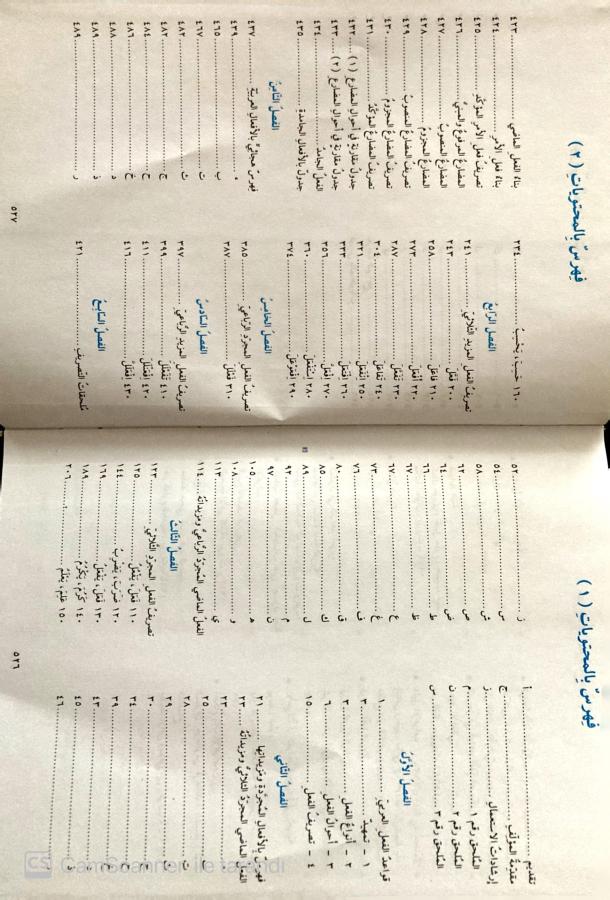 فِهرسٌ بالمحتويات (١)
تقديم ... أ
مقدّمة المؤلّف ... ج
إرشادات الاستعمال ... ز
الملحق رقم ١ ... م
الملحق رقم ٢ ... ن
الملحق رقم ٣ ... س
الفصلُ الأوّلُ
قواعدُ الفعل العربيّ ... ١
١ - تمهيد ... ٣
٢ - أنواعُ الفعل ... ٣
٣ - أحوالُ الفعل ... ٦
٤ - تصريفُ الفعل ... ١٥
الفصلُ الثاني
فهرسٌ بالأفعال المجرّدة ومَزيداتها ... ٢١
الفعلُ الماضي المجرّدُ الثلاثيّ ومزيداتُهُ ... ٢٣
ء ... ٢٣
ب ... ٢٥
ت ... ٢٨
ث ... ٢٩
ج ... ٣٠
ح ... ٣٤
خ ... ٣٩
د ... ٤٣
ذ ... ٤٥
ر ... ٤٦
ز ... ٥٢
س ... ٥٤
ش ... ٥٨
ص ... ٦٢
ض ... ٦٤
ط ... ٦٦
ظ ... ٦٧
ع ... ٦٧
غ ... ٧٣
ف ... ٧٦
ق ... ٨٠
ك ... ٨٥
ل ... ٨٩
م ... ٩٢
ن ... ٩٧
ه ... ١٠٥
و ... ١٠٨
ي ... ١١٣
الفعلُ الماضي المجرّدُ الرّباعيّ ومزيداتُهُ ... ١١٤
الفصلُ الثالثُ
تصريفُ الفعل المجرّد الثّلاثيّ ... ١٢٣
١١٠ فَعَلَ، يَفْعُلُ ... ١٢٥
١٢٠ ضَرَبَ، يَضرِبُ ... ١٤٤
١٣٠ فَعَلَ، يَفْعَلُ ... ١٦٩
١٤٠ كَرُمَ، يَكْرُمُ ... ١٨٩
١٥٠ عَلِمَ، يَعْلَمُ ... ٢٠٦
٥٢٦
فِهرسٌ بالمحتويات (٢)
١٦٠ حَسِبَ، يَحْسِبُ ... ٢٣٤
الفصلُ الرّابعُ
تصريفُ الفعل المزيد الثّلاثيّ ... ٢٤١
٢٠٠ فَعَّلَ ... ٢٤٣
٢١٠ فاعَلَ ... ٢٥٨
٢٢٠ أَفْعَلَ ... ٢٧٣
٢٣٠ تَفَعَّلَ ... ٢٨٧
٢٤٠ تَفاعَلَ ... ٣٠٤
٢٥٠ اِنْفَعَلَ ... ٣٢١
٢٦٠ اِفْتَعَلَ ... ٣٣٣
٢٧٠ اِفْعَلَّ ... ٣٥٦
٢٨٠ اِسْتَفْعَلَ ... ٣٦٠
٢٩٠ اِفْعَوْعَلَ ... ٣٧٤
الفصلُ الخامسُ
تصريفُ الفعل المجرّد الرّباعيّ ... ٣٨٥
٣١٠ فَعْلَلَ ... ٣٨٧
الفصلُ السّادسُ
تصريفُ الفعل المزيد الرّباعيّ ... ٣٩٧
٤١٠ تَفَعْلَلَ ... ٣٩٩
٤٢٠ اِفْعَنْلَلَ ... ٤١١
٤٣٠ اِفْعَلَلَّ ... ٤١٦
الفصلُ السّابعُ
مُلحقاتُ التصريف ... ٤٢١
بناءُ الفعل الماضي ... ٤٢٣
بناءُ فعل الأمر ... ٤٢٤
تصريفُ فعل الأمر المؤكّد ... ٤٢٥
المضارعُ المرفوعُ والمبنيُّ ... ٤٢٦
المضارعُ المنصوبُ ... ٤٢٧
المضارعُ المجزومُ ... ٤٢٨
تصريفُ المضارع المنصوبُ ... ٤٢٩
تصريفُ المضارع المجزومُ ... ٤٣٠
تصريفُ المضارع المؤكّدُ ... ٤٣١
جدولُ مقارنةٍ في أحوال المضارع (١) ... ٤٣٢
جدولُ مقارنةٍ في أحوال المضارع (٢) ... ٤٣٣
الفعلُ الجامدُ ... ٤٣٤
جدولٌ بالأفعال الجامدة ... ٤٣٥
الفصلُ الثّامنُ
فهرسٌ هجائيٌّ بالأفعال العربيّة ... ٤٣٧
ء ... ٤٣٩
ب ... ٤٦٥
ت ... ٤٦٧
ث ... ٤٨٢
ج ... ٤٨٢
ح ... ٤٨٤
خ ... ٤٨٦
د ... ٤٨٨
ذ ... ٤٨٩
ر ... ٤٨٩
٥٢٧
CS CamScanner ile tarandı